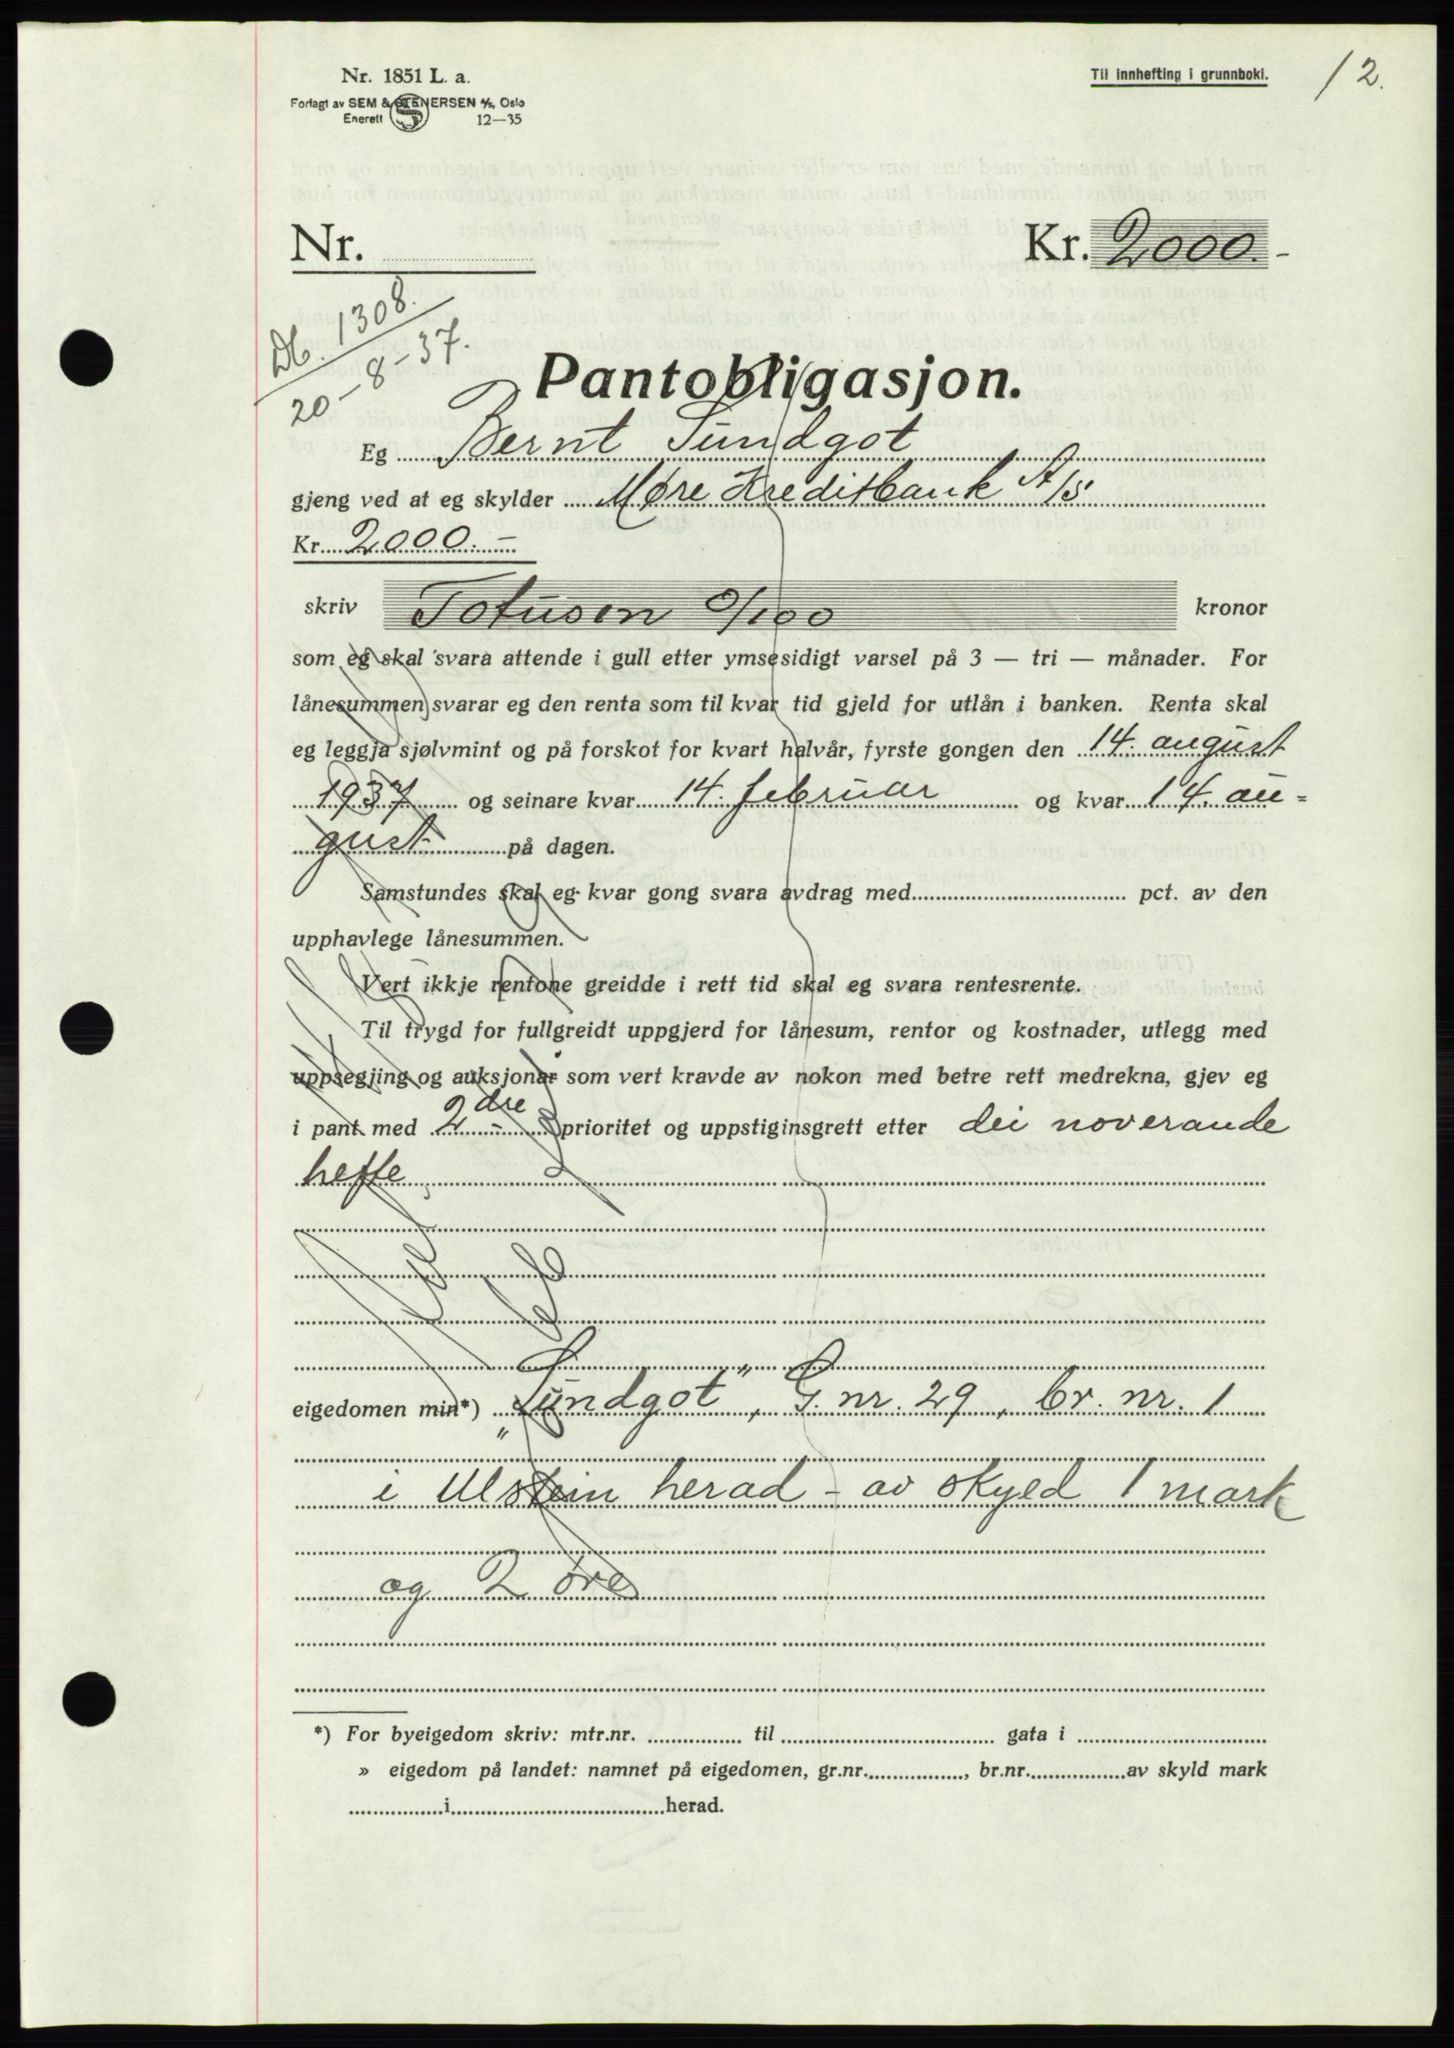 Nr. 1851 L. a.
Til innhefting i grunnboki.
12.
Forlagt av SEM & STENERSEN A/S, Oslo
Enerett 12—35
Nr.
Kr. 2000.-
Db. 1308.
20-8-37.
Pantobligasjon.
Eg Bernt Sundgot
gjeng ved at eg skylder Møre Kreditbank A/S
Kr. 2000.-
skriv Totusen 0/100 kronor
som eg skal svara attende i gull etter ymsesidigt varsel på 3 — tri — månader. For
lånesummen svarar eg den renta som til kvar tid gjeld for utlån i banken. Renta skal
eg leggja sjølvmint og på forskot for kvart halvår, fyrste gongen den 14. august
1937 og seinare kvar 14. februar og kvar 14. au=
gust på dagen.
Samstundes skal eg kvar gong svara avdrag med pct. av den
upphavlege lånesummen.
Vert ikkje rentone greidde i rett tid skal eg svara rentesrente.
Til trygd for fullgreidt uppgjerd for lånesum, rentor og kostnader, utlegg med
uppsegjing og auksjonar som vert kravde av nokon med betre rett medrekna, gjev eg
i pant med 2dre prioritet og uppstiginsgrett etter dei noverande
hefte,
eigedomen min*) „Sundgot", G. nr. 29, br. nr. 1
i Ulstein herad - av skyld 1 mark
og 2 øre
*) For byeigedom skriv: mtr.nr. til gata i
» eigedom på landet: namnet på eigedomen, gr.nr. , br.nr. av skyld mark
i herad.